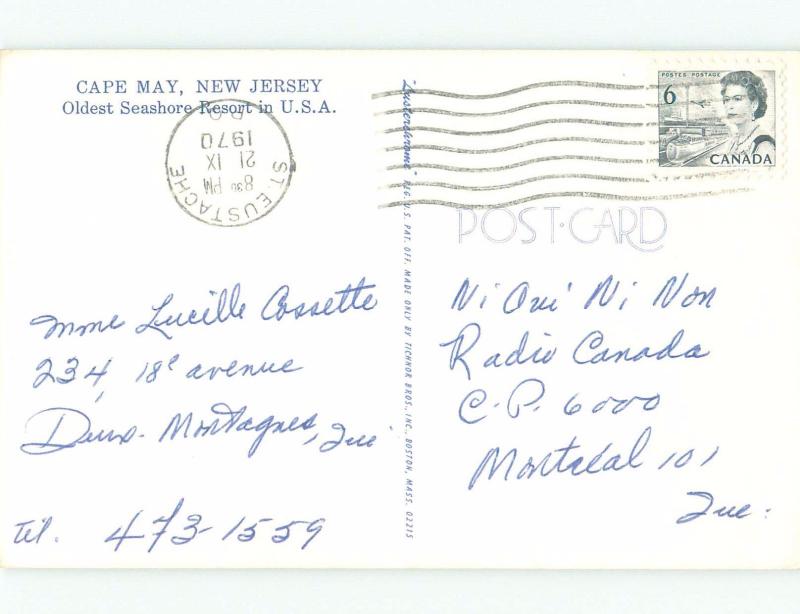 CAPE MAY, NEW JERSEY
Oldest Seashore Resort in U.S.A.
ST. EUSTACHE
8 30 PM
21 IX
1970
P Q
"Lusterchrome" REG. U.S. PAT. OFF. MADE ONLY BY TICHNOR BROS., INC., BOSTON, MASS. 02215
POSTES POSTAGE
6
CANADA
POST·CARD
Mme Lucille Cossette
234, 18e avenue
Deux-Montagnes, Qué
Tél. 473-1559
Ni Oui Ni Non
Radio Canada
C.P. 6000
Montréal 101
Que.